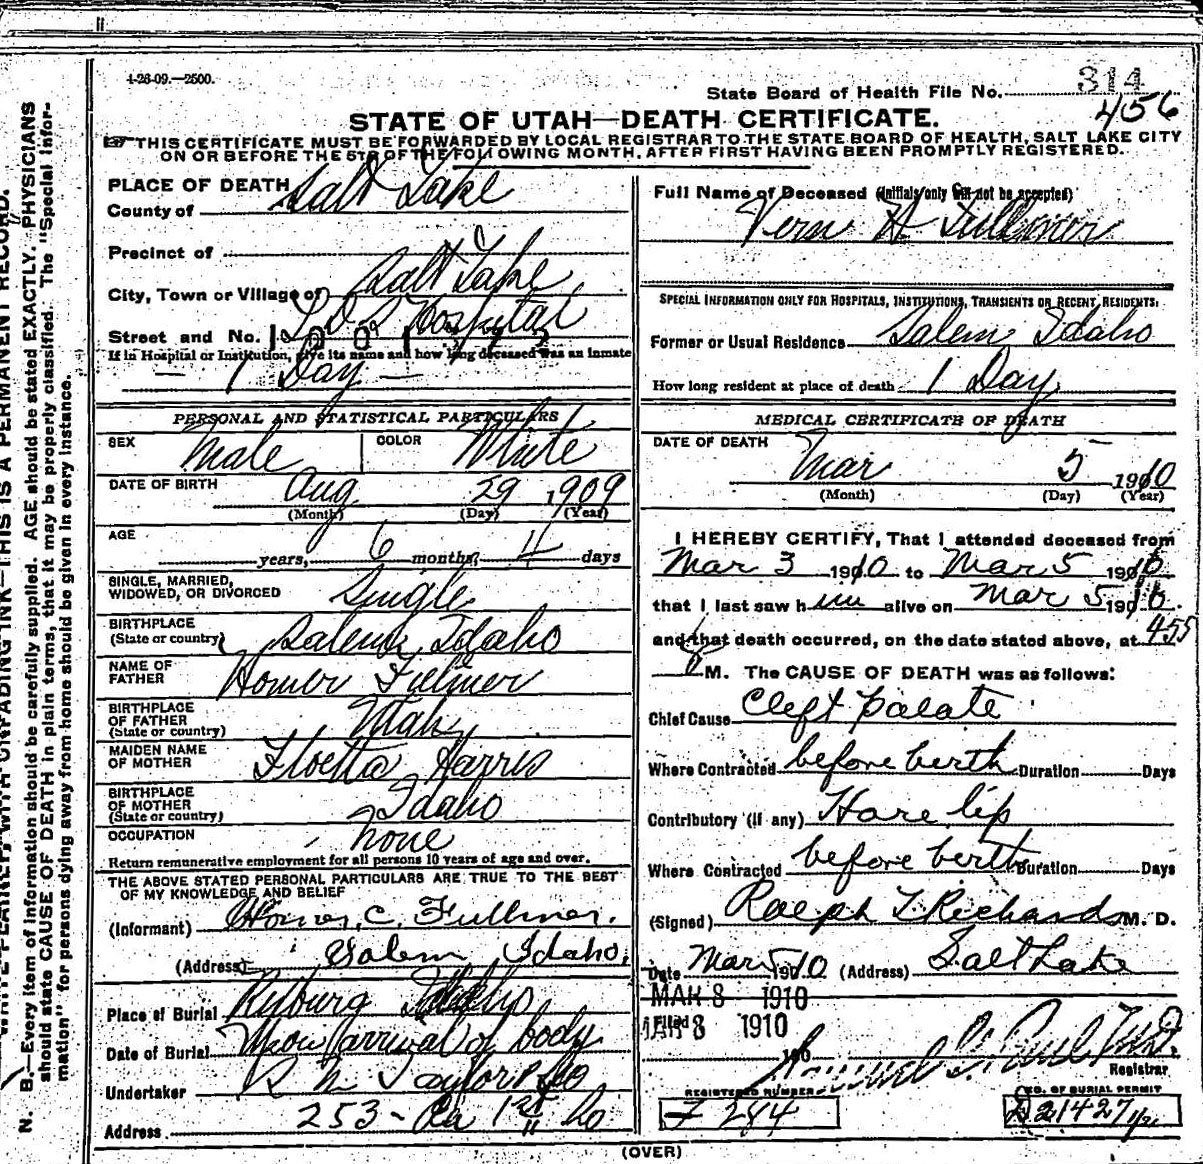 1-26-09.—2500.
State Board of Health File No. 314
456
STATE OF UTAH—DEATH CERTIFICATE.
THIS CERTIFICATE MUST BE FORWARDED BY LOCAL REGISTRAR TO THE STATE BOARD OF HEALTH, SALT LAKE CITY
ON OR BEFORE THE 5TH OF THE FOLLOWING MONTH, AFTER FIRST HAVING BEEN PROMPTLY REGISTERED.
PLACE OF DEATH
County of Salt Lake
Precinct of
City, Town or Village of Salt Lake
Street and No. L D S Hospital
If in Hospital or Institution, give its name and how long deceased was an inmate
— 1 Day —
PERSONAL AND STATISTICAL PARTICULARS
SEX Male COLOR White
DATE OF BIRTH Aug 29 1909
(Month) (Day) (Year)
AGE
years, 6 months, 4 days
SINGLE, MARRIED,
WIDOWED, OR DIVORCED Single
BIRTHPLACE
(State or country) Salem, Idaho
NAME OF
FATHER Homer Fullmer
BIRTHPLACE
OF FATHER
(State or country) Utah
MAIDEN NAME
OF MOTHER Floetta Harris
BIRTHPLACE
OF MOTHER
(State or country) Idaho
OCCUPATION none
Return remunerative employment for all persons 10 years of age and over.
THE ABOVE STATED PERSONAL PARTICULARS ARE TRUE TO THE BEST
OF MY KNOWLEDGE AND BELIEF
(Informant) Homer C. Fullmer.
(Address) Salem Idaho.
Place of Burial Rexburg Idaho
Date of Burial Upon arrival of body
Undertaker S M Taylor & Co
Address 253 - 1st So
Full Name of Deceased (Initials only will not be accepted)
Vern H Fullmer
SPECIAL INFORMATION ONLY FOR HOSPITALS, INSTITUTIONS, TRANSIENTS OR RECENT RESIDENTS:
Former or Usual Residence Salem Idaho
How long resident at place of death 1 Day
MEDICAL CERTIFICATE OF DEATH
DATE OF DEATH
Mar 5 1910
(Month) (Day) (Year)
I HEREBY CERTIFY, That I attended deceased from
Mar 3 1910 to Mar 5 1910
that I last saw him alive on Mar 5 1910.
and that death occurred, on the date stated above, at 4 55
M. The CAUSE OF DEATH was as follows:
Chief Cause Cleft palate
Where Contracted before berth Duration Days
Contributory (if any) Hare lip
Where Contracted before berth Duration Days
(Signed) Ralph T Richards M. D.
Date Mar 5 1910 (Address) Salt Lake
MAR 8 1910
Filed 8 1910
190
Registrar
REGISTERED NUMBER
284
NO. OF BURIAL PERMIT
21427
(OVER)
N. B.—Every item of information should be carefully supplied. AGE should be stated EXACTLY. PHYSICIANS
should state CAUSE OF DEATH in plain terms, that it may be properly classified. The "Special Infor-
mation" for persons dying away from home should be given in every instance.
WITH UNFADING INK—THIS IS A PERMANENT RECORD.